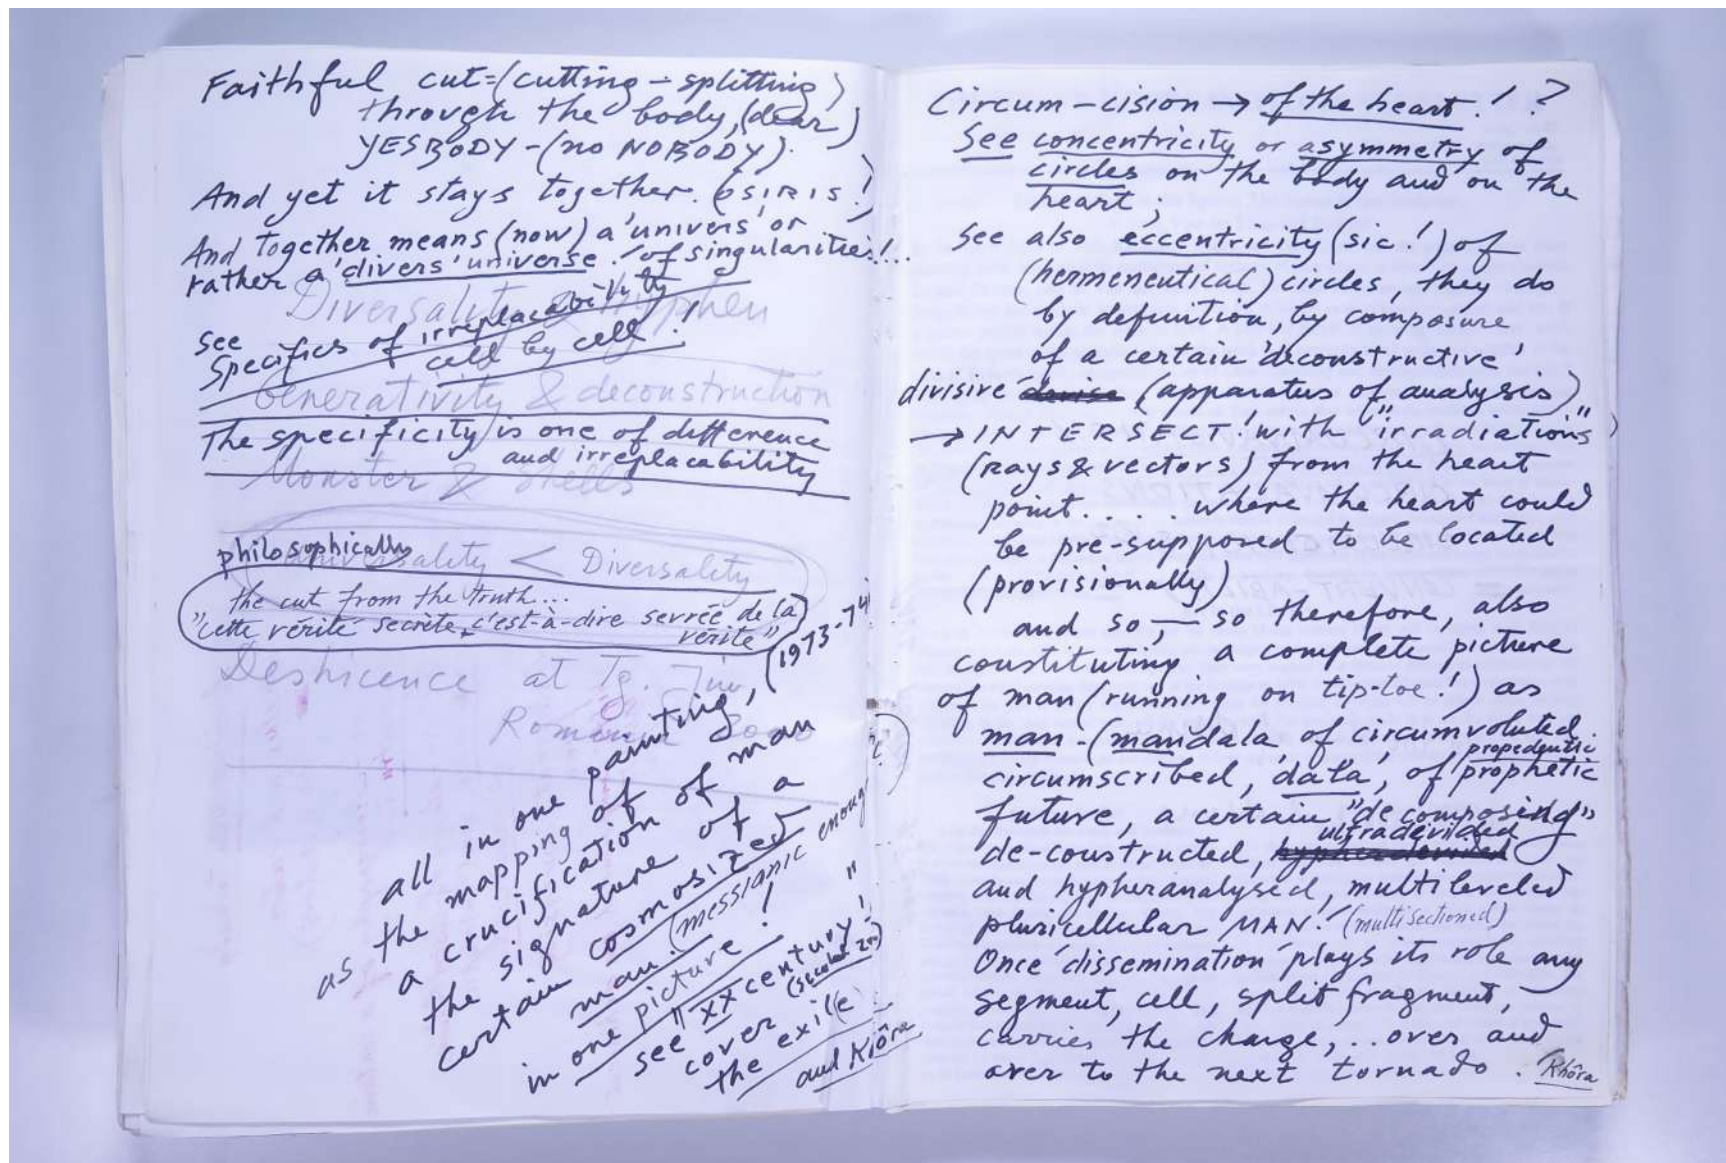 Faithful cut=(cutting - splitting)
through the body, (dear)
YESBODY-(no NOBODY).
And yet it stays together. (OSIRIS!)
And together means (now) a 'univers' or
rather a 'divers' universe! of singularities!...
Diversality & Hyphen
see
Specifics of irreplacability
cell by cell!
Generativity & deconstruction
The specificity is one of difference
and irreplacability
Monster & Shells
philosophically
Universality < Diversality
the cut from the truth...
"cette vérité secrète, c'est-à-dire sevrée de la
vérité"
Deshicence at Tg. Jiu,
Romania 2000
all in one painting, (1973-74
as the mapping of
a crucification of man
the signature of a
certain cosmosized
man! (messianic enough?)
in one picture!
see "XX century!"
cover
the exile
and Kiôra
Circum-cision → of the heart! ?
See concentricity or asymmetry of
circles on the body and on the
heart;
see also eccentricity (sic!) of
(hermeneutical) circles, they do
by definition, by composure
of a certain 'deconstructive'
divisive devise (apparatus of analysis)
→ INTERSECT! with "irradiations"
(rays & vectors) from the heart
point..... where the heart could
be pre-supposed to be located
(provisionally)
and so, — so therefore, also
constituting a complete picture
of man (running on tip-toe!) as
man-(mandala, of circumvoluted.
propedeutic
circumscribed, 'data', of prophetic
future, a certain "decomposing"
ultradevided
de-constructed,
and hypheranalysed, multileveled
pluricellular MAN! (multisectioned)
Once 'dissemination' plays its role any
segment, cell, split fragment,
carries the charge,.. over and
over to the next tornado. Khôra